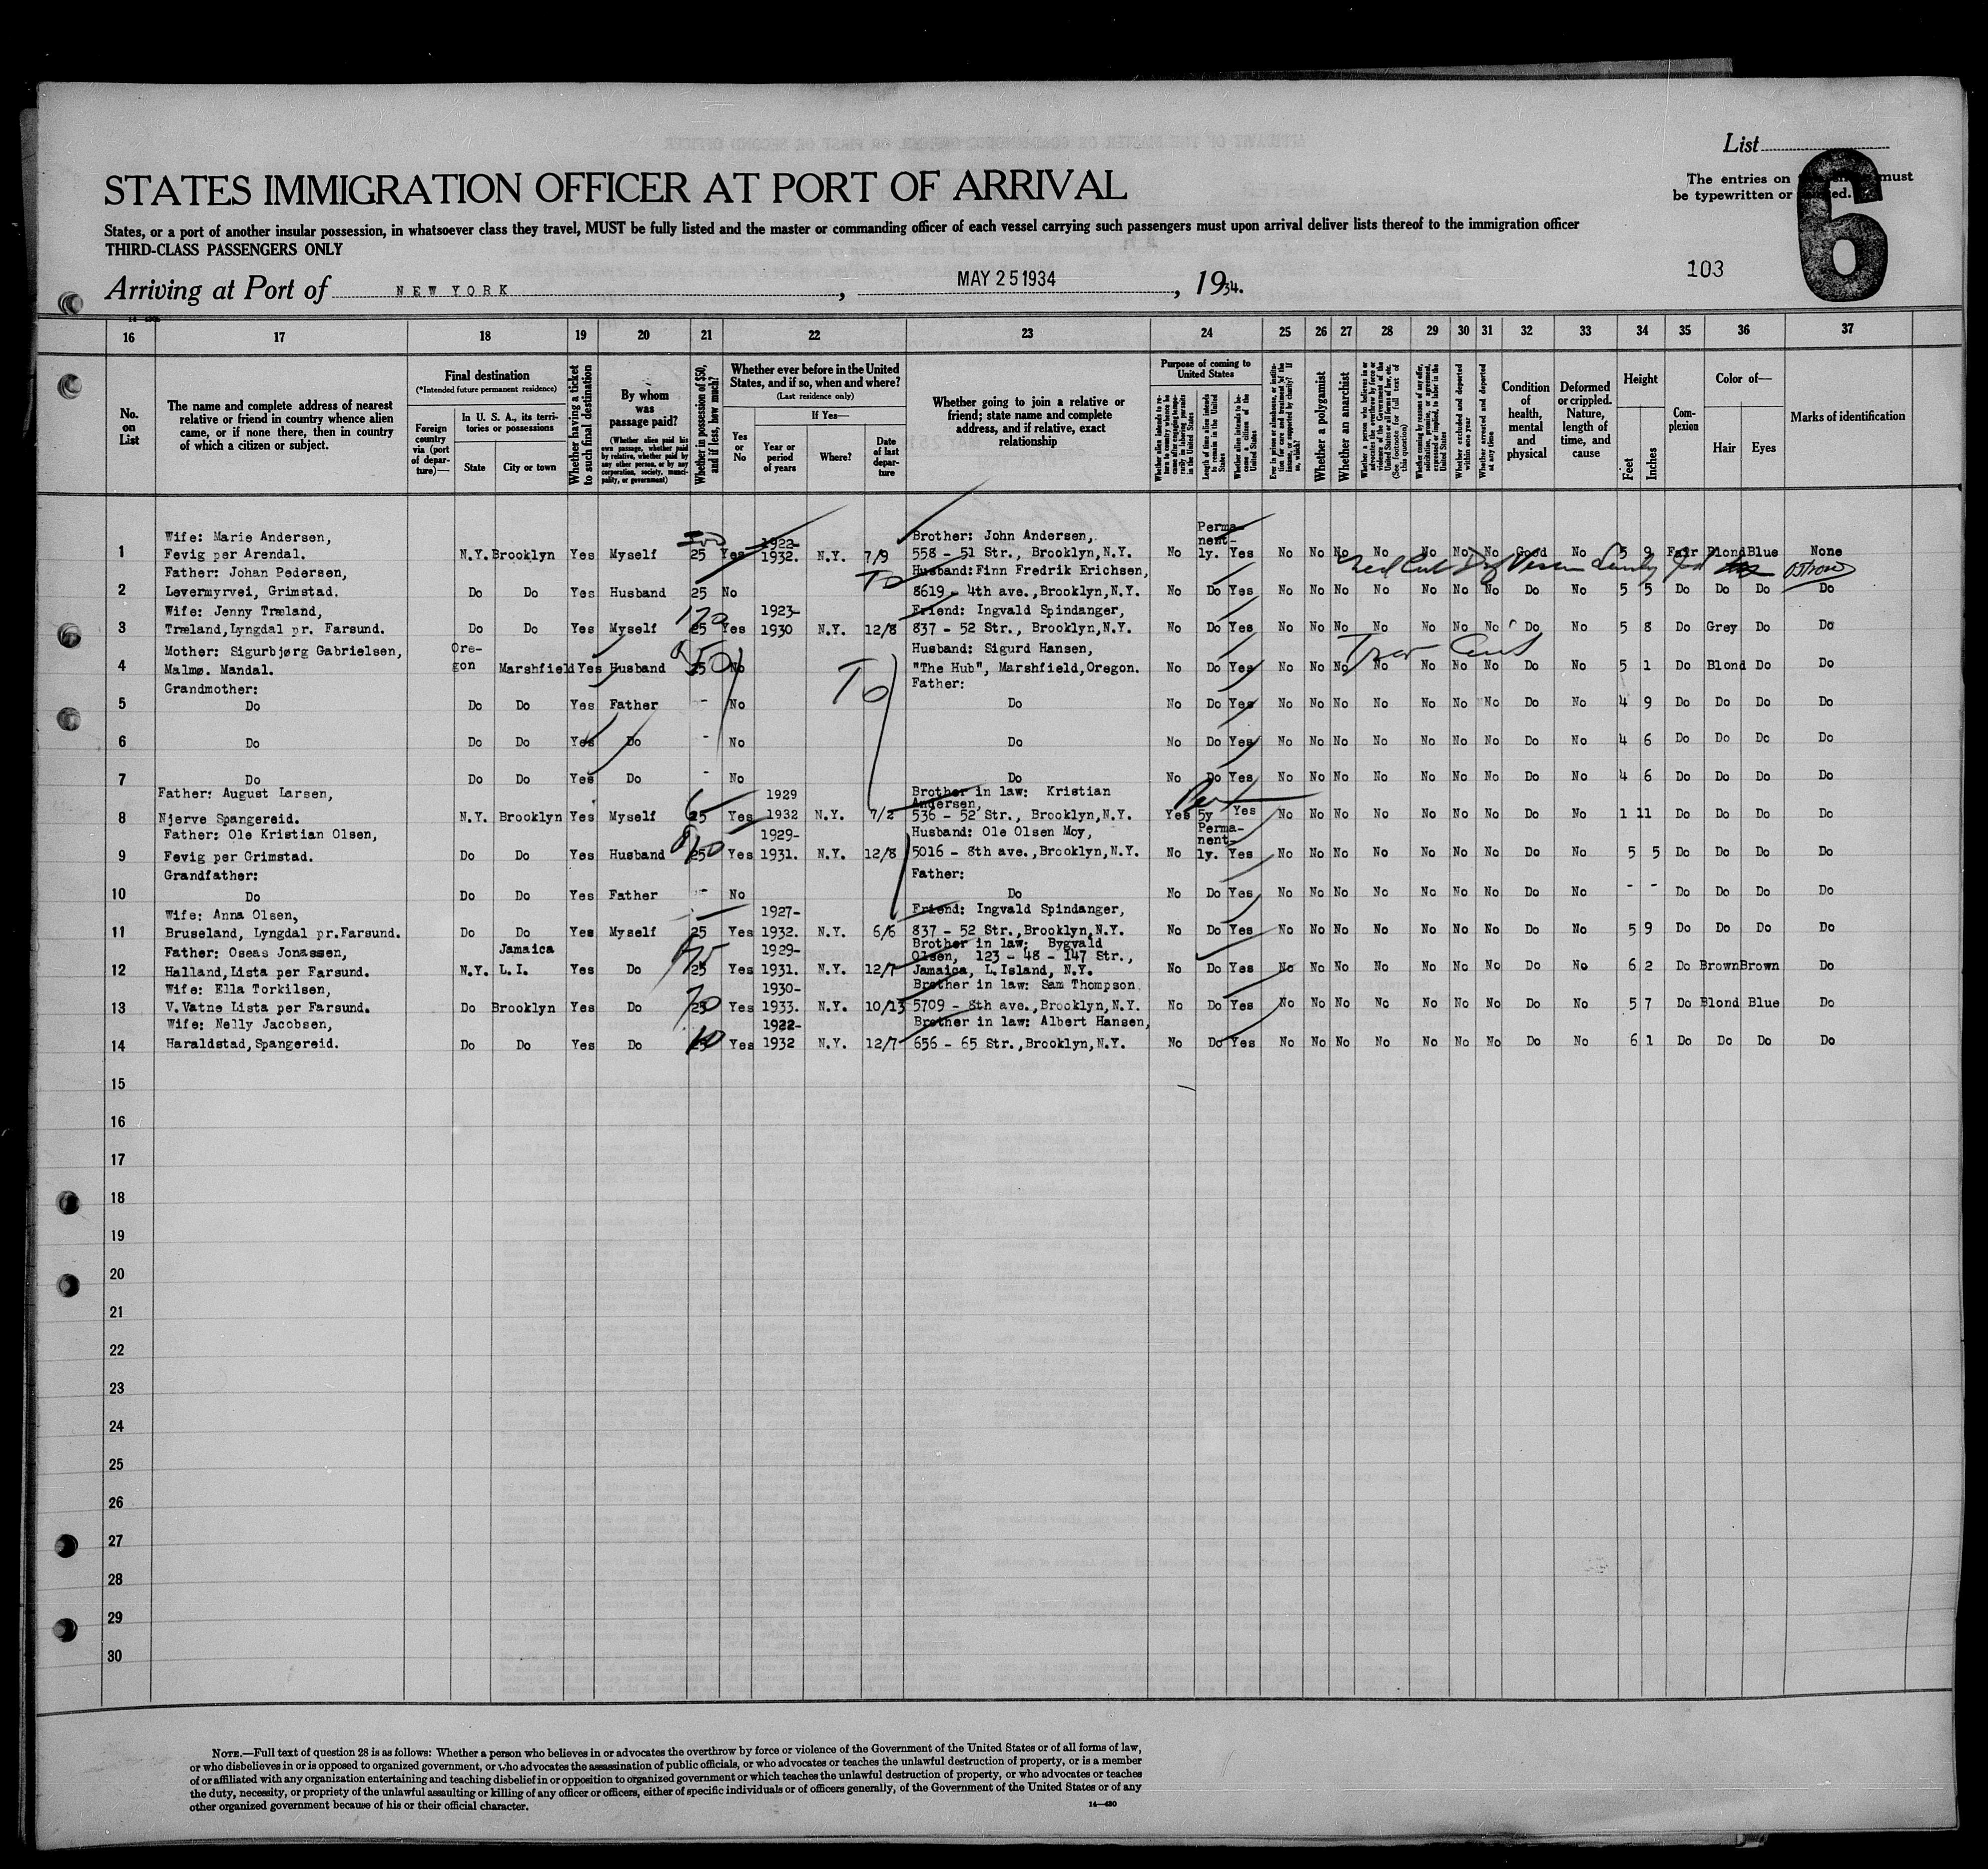 List
6
The entries on must
be typewritten or
STATES IMMIGRATION OFFICER AT PORT OF ARRIVAL
States, or a port of another insular possession, in whatsoever class they travel, MUST be fully listed and the master or commanding officer of each vessel carrying such passengers must upon arrival deliver lists thereof to the immigration officer
THIRD-CLASS PASSENGERS ONLY
103
Arriving at Port of NEW YORK, MAY 25 1934, 1934.
16 17 18 19 20 21 22 23 24 25 26 27 28 29 30 31 32 33 34 35 36 37
No. on List
The name and complete address of nearest relative or friend in country whence alien came, or if none there, then in country of which a citizen or subject.
Final destination
(*Intended future permanent residence)
Foreign country via (port of departure)—
In U. S. A., its territories or possessions
State City or town
Whether having a ticket to such final destination
By whom was passage paid?
(Whether alien paid his own passage, whether paid by relative, whether paid by any other person, or by any corporation, society, municipality, or government)
Whether in possession of $50, and if less, how much?
Whether ever before in the United States, and if so, when and where?
(Last residence only)
Yes or No
If Yes—
Year or period of years
Where?
Date of last departure
Whether going to join a relative or friend; state name and complete address, and if relative, exact relationship
Purpose of coming to United States
Whether alien intends to return to country whence he came after engaging temporarily in laboring pursuits in the United States
Length of time alien intends to remain in the United States
Whether alien intends to become a citizen of the United States
Ever in prison or almshouse, or institution for care and treatment of the insane, or supported by charity? If so, which?
Whether a polygamist
Whether an anarchist
Whether a person who believes in or advocates the overthrow by force or violence of the Government of the United States or all forms of law, etc. (See footnote for full text of this question)
Whether coming by reasons of any offer, solicitation, promise, or agreement, expressed or implied, to labor in the United States
Whether excluded and deported within one year
Whether arrested and deported at any time
Condition of health, mental and physical
Deformed or crippled. Nature, length of time, and cause
Height
Feet Inches
Complexion
Color of—
Hair Eyes
Marks of identification
Wife: Marie Andersen, 1922- Brother: John Andersen, Permanent-
1 Fevig per Arendal. N.Y. Brooklyn Yes Myself 25 Yes 1932. N.Y. 7/9 558 - 51 Str., Brooklyn, N.Y. No ly. Yes No No No No No No No Good No 5 9 Fair Blond Blue None
Father: Johan Pedersen, To Husband: Finn Fredrik Erichsen,
2 Levermyrvei, Grimstad. Do Do Yes Husband 25 No 8619 - 4th ave., Brooklyn, N.Y. No Do Yes No No No No No No No Do No 5 5 Do Do Do Do
Wife: Jenny Træland, 120 1923- Friend: Ingvald Spindanger,
3 Træland, Lyngdal pr. Farsund. Do Do Yes Myself 25 Yes 1930 N.Y. 12/8 837 - 52 Str., Brooklyn, N.Y. No Do Yes No No No No No No No Do No 5 8 Do Grey Do Do
Mother: Sigurbjørg Gabrielsen, Ore- Husband: Sigurd Hansen,
4 Malmø. Mandal. gon Marshfield Yes Husband 25 No "The Hub", Marshfield, Oregon. No Do Yes No No No No No No No Do No 5 1 Do Blond Do Do
Grandmother: To Father:
5 Do Do Do Yes Father - No Do No Do Yes No No No No No No No Do No 4 9 Do Do Do Do
6 Do Do Do Yes Do - No Do No Do Yes No No No No No No No Do No 4 6 Do Do Do Do
7 Do Do Do Yes Do - No Do No Do Yes No No No No No No No Do No 4 6 Do Do Do Do
Father: August Larsen, 1929 Brother in law: Kristian Andersen,
8 Njerve Spangereid. N.Y. Brooklyn Yes Myself 25 Yes 1932 N.Y. 7/2 536 - 52 Str., Brooklyn, N.Y. Yes 5y Yes No No No No No No No Do No 1 11 Do Do Do Do
Father: Ole Kristian Olsen, 1929- Husband: Ole Olsen Moy, Permanent-
9 Fevig per Grimstad. Do Do Yes Husband 25 Yes 1931. N.Y. 12/8 5016 - 8th ave., Brooklyn, N.Y. No ly. Yes No No No No No No No Do No 5 5 Do Do Do Do
Grandfather: Father:
10 Do Do Do Yes Father - No Do No Do Yes No No No No No No No Do No - - Do Do Do Do
Wife: Anna Olsen, 1927- Friend: Ingvald Spindanger,
11 Bruseland, Lyngdal pr. Farsund. Do Do Yes Myself 25 Yes 1932. N.Y. 6/6 837 - 52 Str., Brooklyn, N.Y. No Do Yes No No No No No No No Do No 5 9 Do Do Do Do
Father: Oseas Jonassen, Jamaica 1929- Brother in law: Bygvald Olsen, 123 - 48 - 147 Str.,
12 Halland, Lista per Farsund. N.Y. L.I. Yes Do 25 Yes 1931. N.Y. 12/7 Jamaica, L. Island, N.Y. No Do Yes No No No No No No No Do No 6 2 Do Brown Brown Do
Wife: Ella Torkilsen, 1930- Brother in law: Sam Thompson
13 V. Vatne Lista per Farsund. Do Brooklyn Yes Do 25 Yes 1933. N.Y. 10/13 5709 - 8th ave., Brooklyn, N.Y. No Do Yes No No No No No No No Do No 5 7 Do Blond Blue Do
Wife: Nelly Jacobsen, 1922- Brother in law: Albert Hansen,
14 Haraldstad, Spangereid. Do Do Yes Do 25 Yes 1932 N.Y. 12/7 656 - 65 Str., Brooklyn, N.Y. No Do Yes No No No No No No No Do No 6 1 Do Do Do Do
15
16
17
18
19
20
21
22
23
24
25
26
27
28
29
30
NOTE.—Full text of question 28 is as follows: Whether a person who believes in or advocates the overthrow by force or violence of the Government of the United States or of all forms of law,
or who disbelieves in or is opposed to organized government, or who advocates the assassination of public officials, or who advocates or teaches the unlawful destruction of property, or is a member
of or affiliated with any organization entertaining and teaching disbelief in or opposition to organized government or which teaches the unlawful destruction of property, or who advocates or teaches
the duty, necessity, or propriety of the unlawful assaulting or killing of any officer or officers, either of specific individuals or of officers generally, of the Government of the United States or of any
other organized government because of his or their official character.
14—430